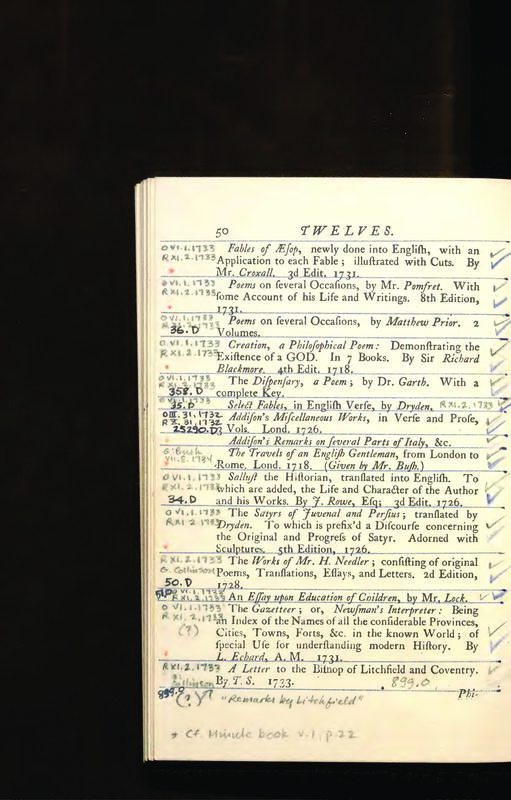 50 TWELVES.
O VI.1.1733 Fables of Æſop, newly done into Engliſh, with an
R XI.2.1733 Application to each Fable; illuſtrated with Cuts. By
Mr. Croxall. 3d Edit. 1731.
O VI.1.1733 Poems on ſeveral Occaſions, by Mr. Pomfret. With
R XI.2.1733 ſome Account of his Life and Writings. 8th Edition,
1731.
O VI.1.1733 Poems on ſeveral Occaſions, by Matthew Prior. 2
36.D Volumes.
O VI.1.1733 Creation, a Philoſophical Poem: Demonſtrating the
R XI.2.1733 Exiſtence of a GOD. In 7 Books. By Sir Richard
Blackmore. 4th Edit. 1718.
O VI.1.1733 The Diſpenſary, a Poem; by Dr. Garth. With a
358.D complete Key.
35.D Select Fables, in Engliſh Verſe, by Dryden. R XI.2.1733
O III.31.1732 Addiſon's Miſcellaneous Works, in Verſe and Proſe,
R X.31.1732 3 Vols. Lond. 1726.
25290.D
Addiſon's Remarks on ſeveral Parts of Italy, &c.
G. Bush The Travels of an Engliſh Gentleman, from London to
VII.8.1734 Rome. Lond. 1718. (Given by Mr. Buſh.)
O VI.1.1733 Salluſt the Hiſtorian, tranſlated into Engliſh. To
R XI.2.1733 which are added, the Life and Character of the Author
34.D and his Works. By J. Rowe, Eſq; 3d Edit. 1726.
O VI.1.1733 The Satyrs of Juvenal and Perſius; tranſlated by
R XI.2.1733 Dryden. To which is prefix'd a Diſcourſe concerning
the Original and Progreſs of Satyr. Adorned with
Sculptures. 5th Edition, 1726.
R XI.2.1733 The Works of Mr. H. Needler; conſiſting of original
O. Collinson Poems, Tranſlations, Eſſays, and Letters. 2d Edition,
50.D 1728.
R XI.2.1733 An Eſſay upon Education of Coildren, by Mr. Lock.
O VI.1.1733 The Gazetteer; or, Newſman's Interpreter: Being
R XI.2.1733 an Index of the Names of all the conſiderable Provinces,
(?) Cities, Towns, Forts, &c. in the known World; of
ſpecial Uſe for underſtanding modern Hiſtory. By
L. Echard, A. M. 1731.
R XI.2.1733 A Letter to the Biſhop of Litchfield and Coventry.
Collinson By T. S. 1733. 899.O
899.O (?) "Remarks by Litchfield" Phi-
* Cf. Minute book v.1, p.22